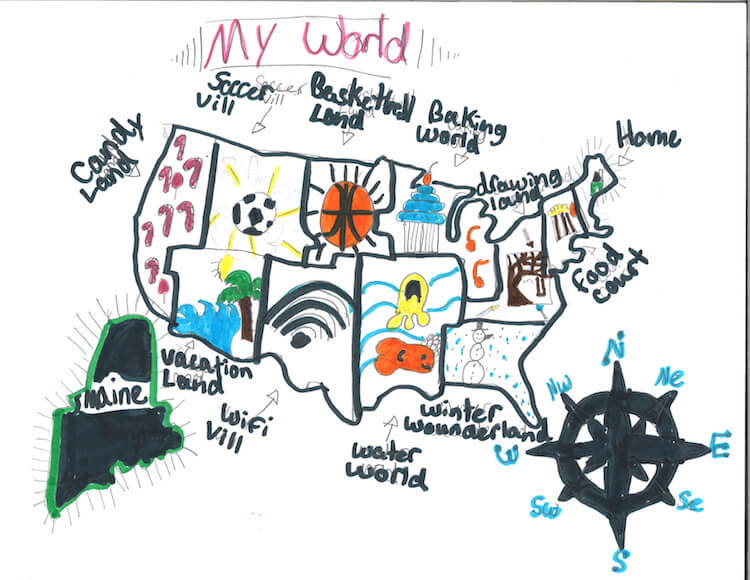 My World
Soccer
Vill
Basketball
Land
Baking
World
Candy
Land
Home
drawing
Food
court
Maine
Vacation
Land
WiFi
Vill
Water
World
Winter
Wounderland
N
Nw
Ne
W
E
Sw
Se
S